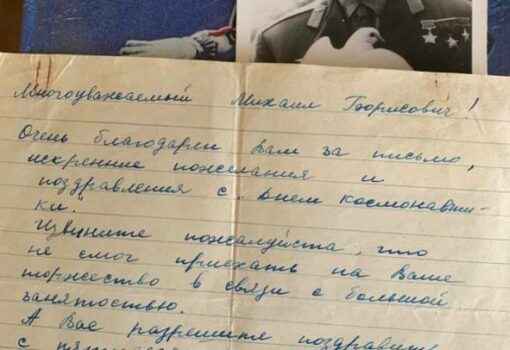 Многоуважаемый Михаил Борисович!
Очень благодарен Вам за письмо,
искренние пожелания и
поздравления с „Днем космонавти-
ки."
Извините пожалуйста, что
не смог приехать на Ваше
торжество в связи с большой
занятостью.
А Вас разрешите поздравить
с